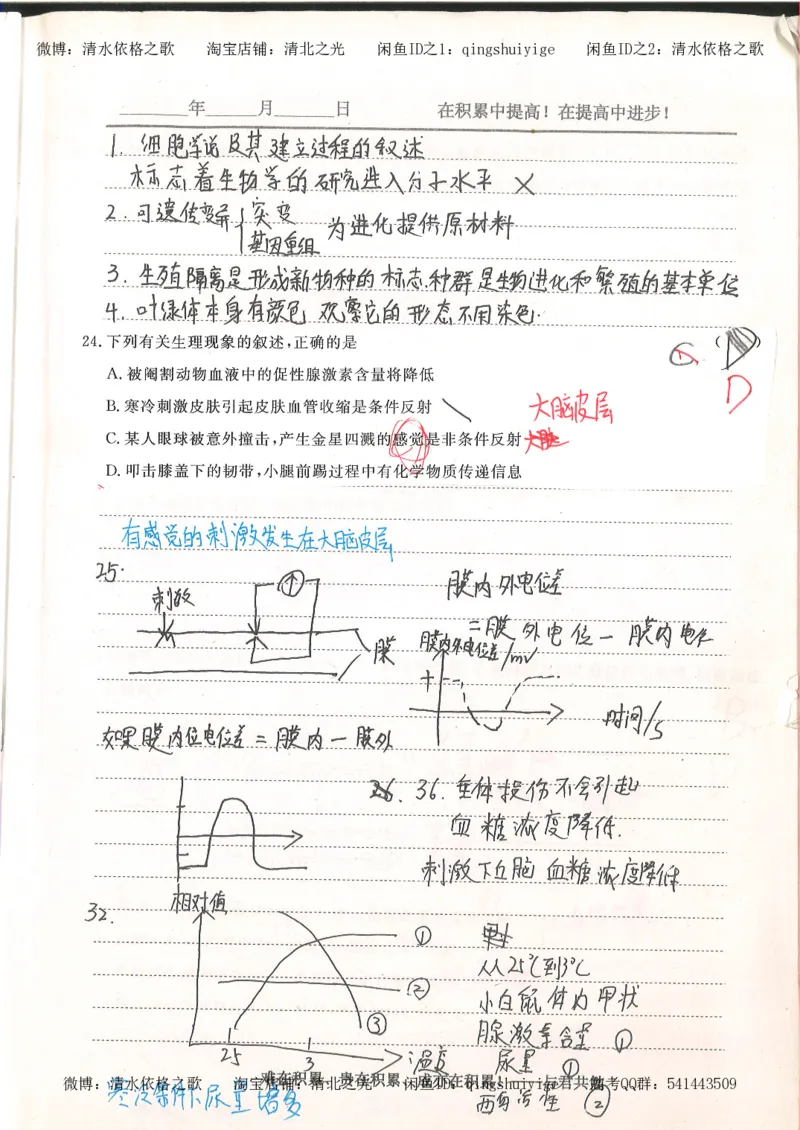 微博：清水依格之歌 淘宝店铺：清北之光 闲鱼ID之1：qingshuiyige 闲鱼ID之2：清水依格之歌
年 月 日 在积累中提高！在提高中进步！
1. 细胞学说及其建立过程的叙述
标志着生物学的研究进入分子水平 ×
2. 可遗传变异{突变
基因重组 为进化提供原材料
3. 生殖隔离是形成新物种的标志,种群是生物进化和繁殖的基本单位
4. 叶绿体本身有颜色 观察它的形态不用染色.
24. 下列有关生理现象的叙述,正确的是 ( )
A. 被阉割动物血液中的促性腺激素含量将降低
D
B. 寒冷刺激皮肤引起皮肤血管收缩是条件反射
大脑皮层
C. 某人眼球被意外撞击,产生金星四溅的感觉是非条件反射
D. 叩击膝盖下的韧带,小腿前踢过程中有化学物质传递信息
有感觉的刺激发生在大脑皮层
25.
刺激
膜
膜内外电位差
=膜外电位-膜内电位
膜内外电位差/mv
+
时间/s
如果膜内位电位差=膜内-膜外
36. 垂体损伤不会引起
血糖浓度降低.
刺激下丘脑 血糖浓度降低
32.
相对值
①
②
③
25
3
温度
从25℃到3℃
小白鼠体内甲状
腺激素含量 ①
尿量 ①
酶活性 ②
难在积累 贵在积累 成亦在积累！ 与君共勉
微博：清水依格之歌 淘宝店铺：清北之光 闲鱼ID：qingshuiyige 高考QQ群：541443509
寒冷条件下尿量增多